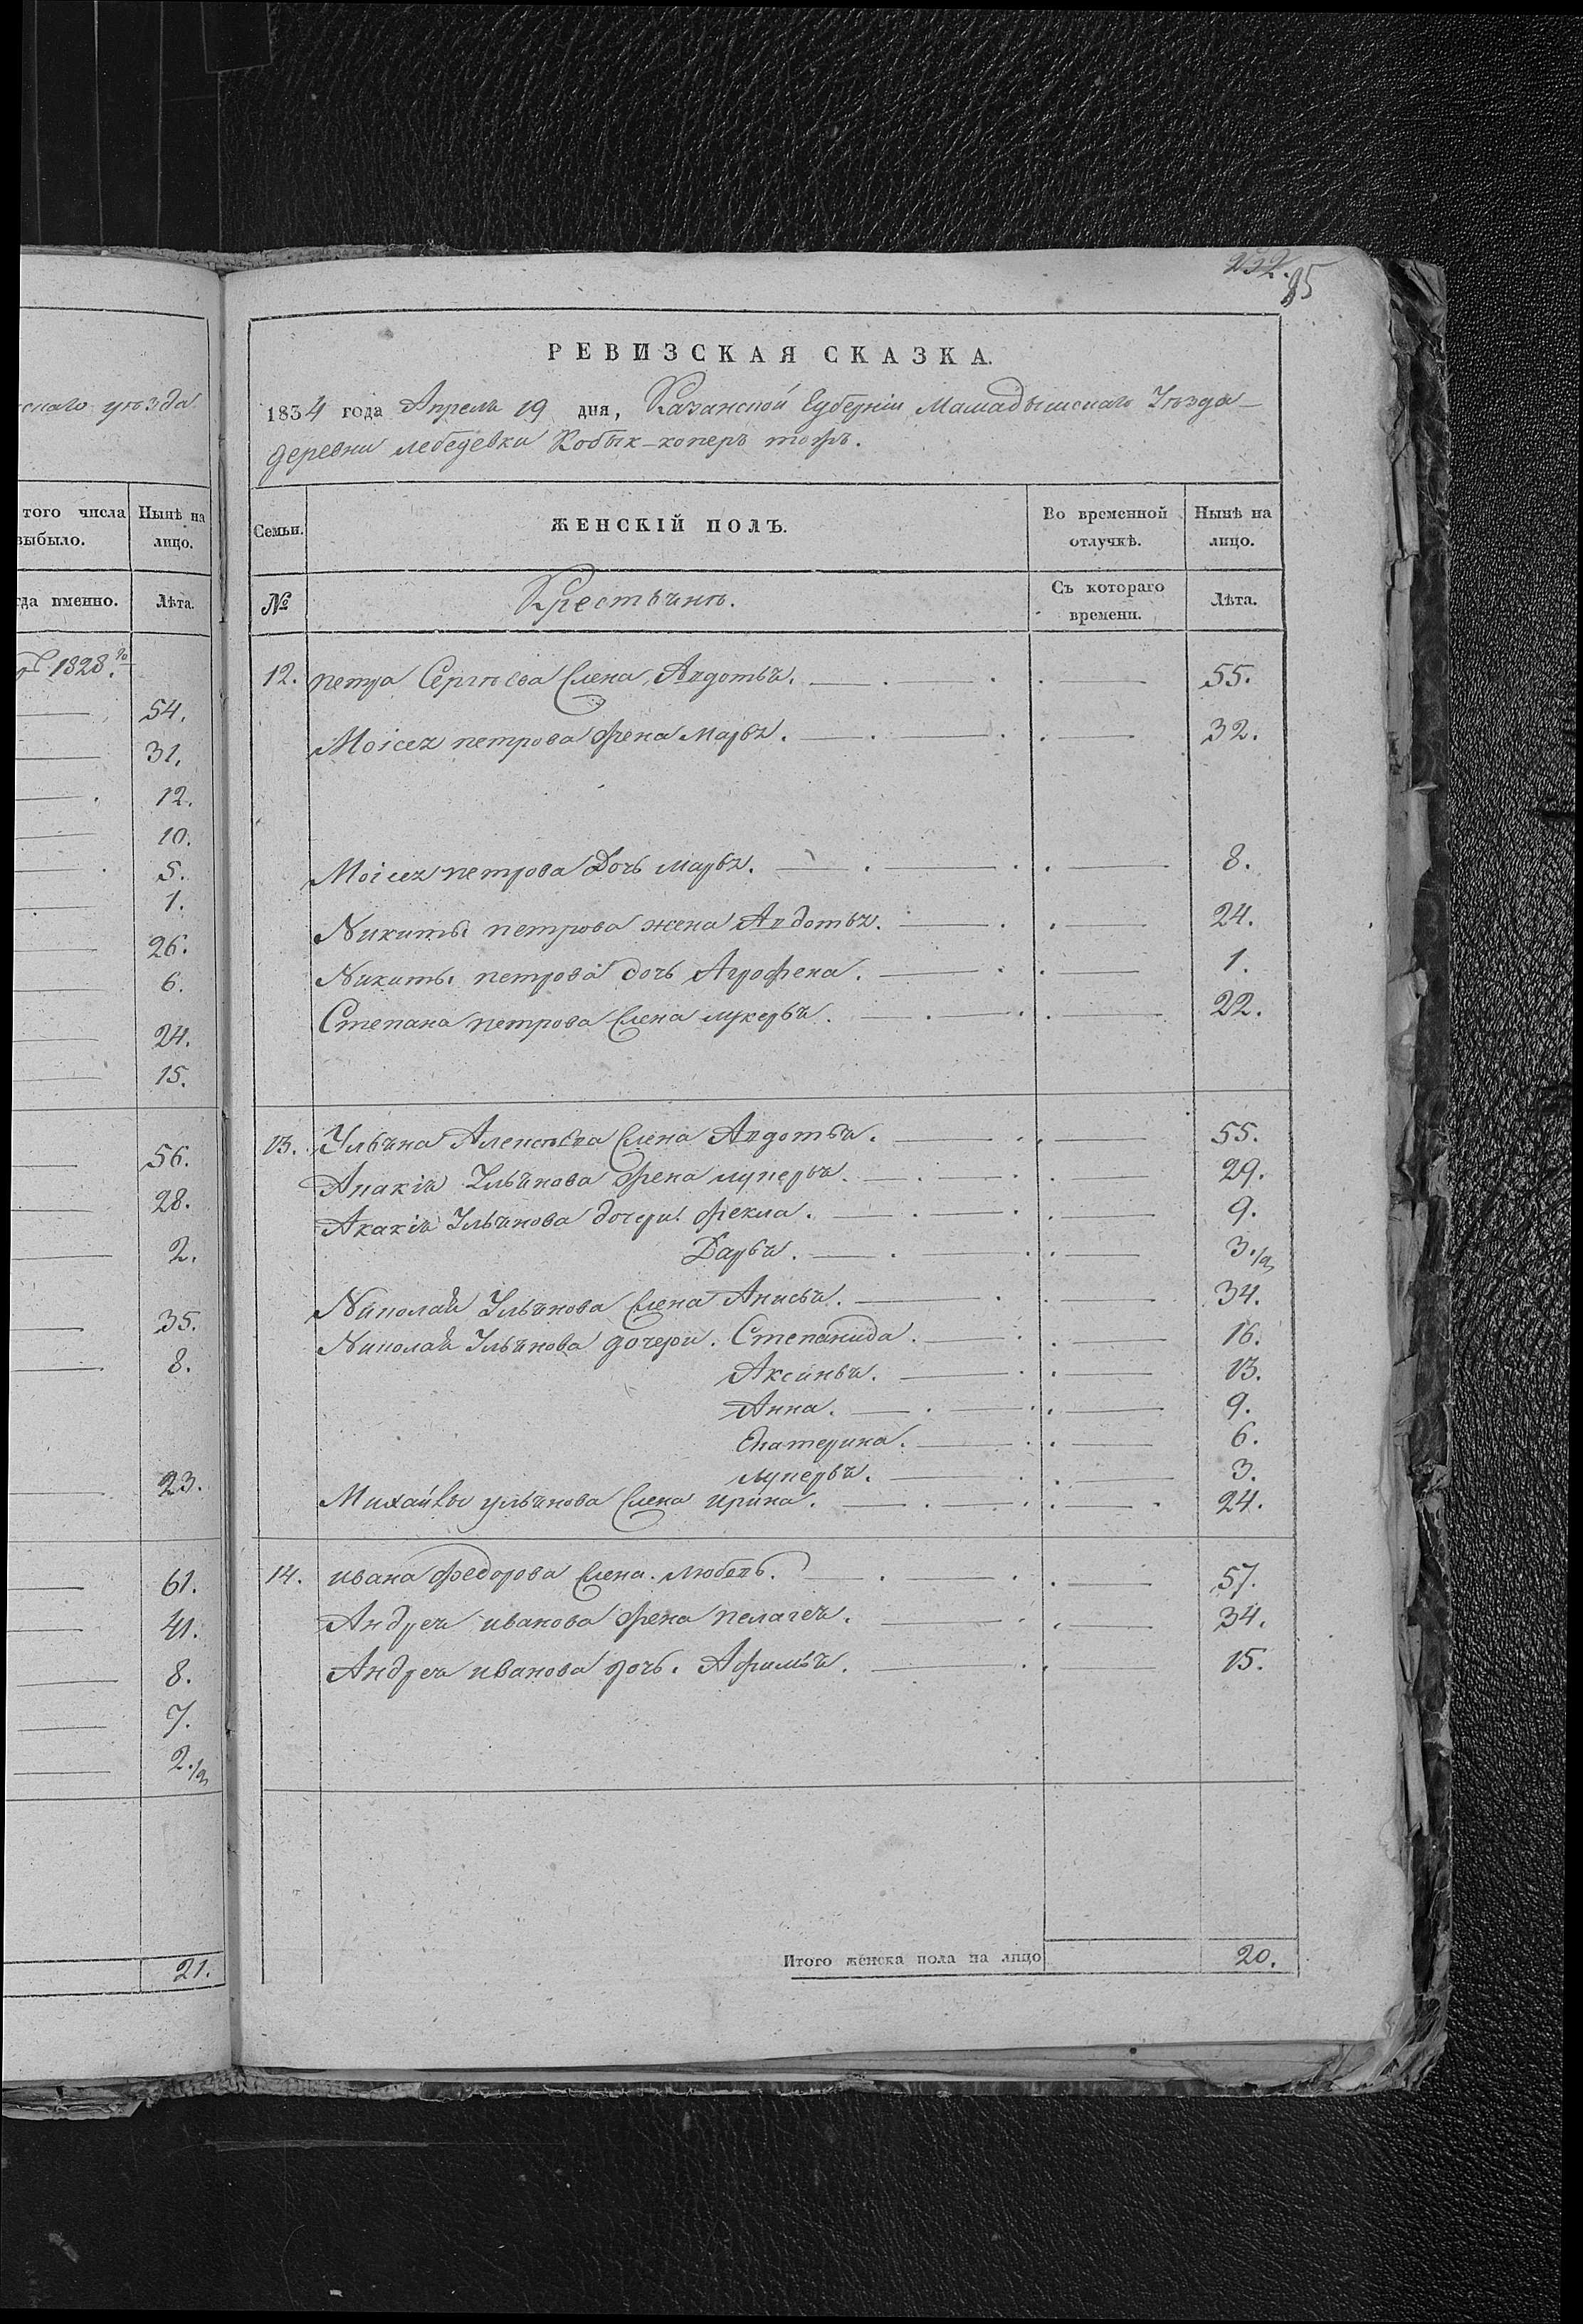 снаго уѣзда
того числа Нынѣ на
выбыло. лицо.
гда именно. Лѣта.
1828.го
54.
31.
12.
10.
5.
1.
26.
6.
24.
15.
56.
28.
2.
35.
8.
23.
61.
41.
8.
7.
2./м
21.
252. 85
РЕВИЗСКАЯ СКАЗКА.
1834 года Апреля 19 дня, Казанской Губерніи Мамадышскаго Уѣзда
деревни лебедевки Кобык-копер тожъ.
Семьи. ЖЕНСКІЙ ПОЛЪ. Во временной Нынѣ на
отлучкѣ. лицо.
№ Крестьянъ. Съ котораго Лѣта.
времени.
12. петра Сергѣева жена Авдотья. 55.
Моісея петрова жена Марья. 32.
Моісея петрова Дочь марья. 8.
Никиты петрова жена Авдотья. 24.
Никиты петрова дочь Агрофена. 1.
Степана петрова жена лукерья. 22.
13. Ульяна Алексѣева жена Авдотья. 55.
Акакія Ульянова жена лукерья. 29.
Акакія Ульянова дочери. фекла. 9.
Дарья. 3./м
Николая Ульянова жена Анисья. 34.
Николая Ульянова дочери. Степанида. 16.
Аксинья. 13.
Анна. 9.
Екатерина. 6.
лукерья. 3.
Михайлы ульянова жена ирина. 24.
14. ивана федорова жена. любовь. 57.
Андрея иванова жена пелагея. 34.
Андрея иванова дочь. Афимья. 15.
Итого женска пола на лицо 20.